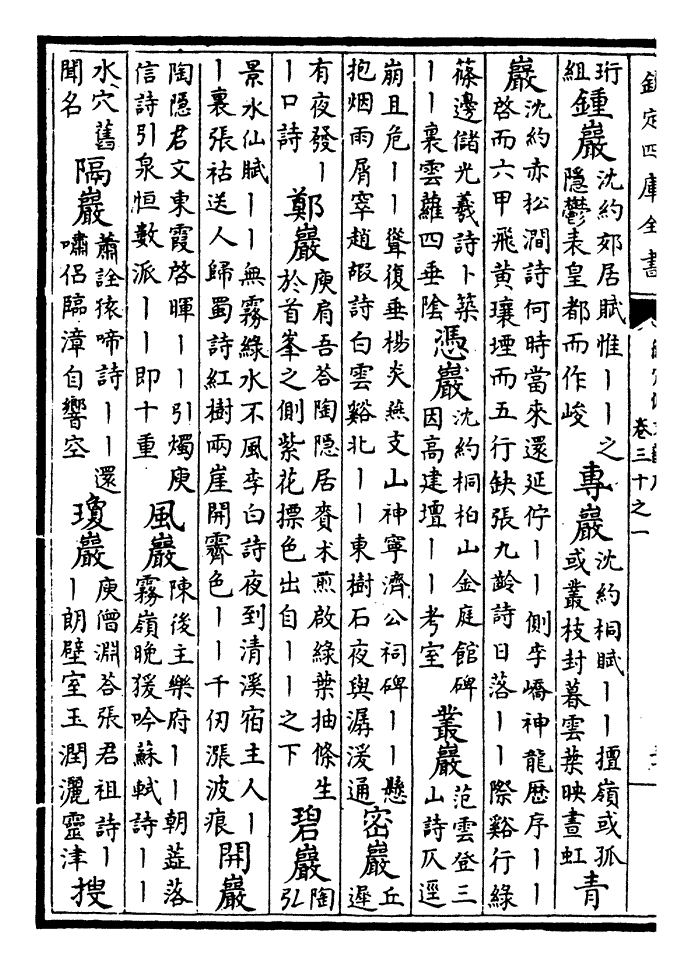 欽定四庫全書
卷三十之一
珩組 鍾巖 沈約郊居賦惟丨丨之隱鬱表皇都而作峻 專巖 沈約桐賦丨丨擅嶺或孤或叢枝封暮雲葉映晝虹 青
巖 沈約赤松澗詩何時當來還延佇丨丨側李嶠神龍厯序丨丨啓而六甲飛黄壤堙而五行缺張九齡詩日落丨丨際谿行緑
篠邊儲光羲詩卜築丨丨裏雲蘿四垂陰 憑巖 沈約桐柏山金庭館碑因高建壇丨丨考室 叢巖 范雲登三山詩仄逕
崩且危丨丨聳復垂楊炎燕支山神寧濟公祠碑丨丨懸抱烟雨屑窣趙嘏詩白雲谿北丨丨東樹石夜與潺湲通 密巖 丘遲
有夜發丨丨口詩 鄭巖 庾肩吾荅陶隱居賚术煎啟緑葉抽條生於首峯之側紫花摽色出自丨丨之下 碧巖 陶弘
景水仙賦丨丨無霧緑水不風李白詩夜到清溪宿主人丨丨裏張祜送人歸蜀詩紅樹兩崖開霽色丨丨千仞漲波痕 開巖
陶隠君文東霞啓暉丨丨引燭庾信詩引泉恒數派丨丨即十重 風巖 陳後主樂府丨丨朝蘂落霧嶺晚猨吟蘇軾詩丨丨
水穴舊聞名 隔巖 蕭詮猿啼詩丨丨還嘯侣臨潭自響空 瓊巖 庾僧淵荅張君祖詩丨丨朗壁室玉潤灑靈津 搜